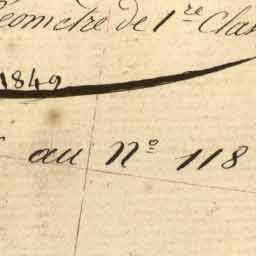 Géomètre de 1re Clas
1849
au No 118